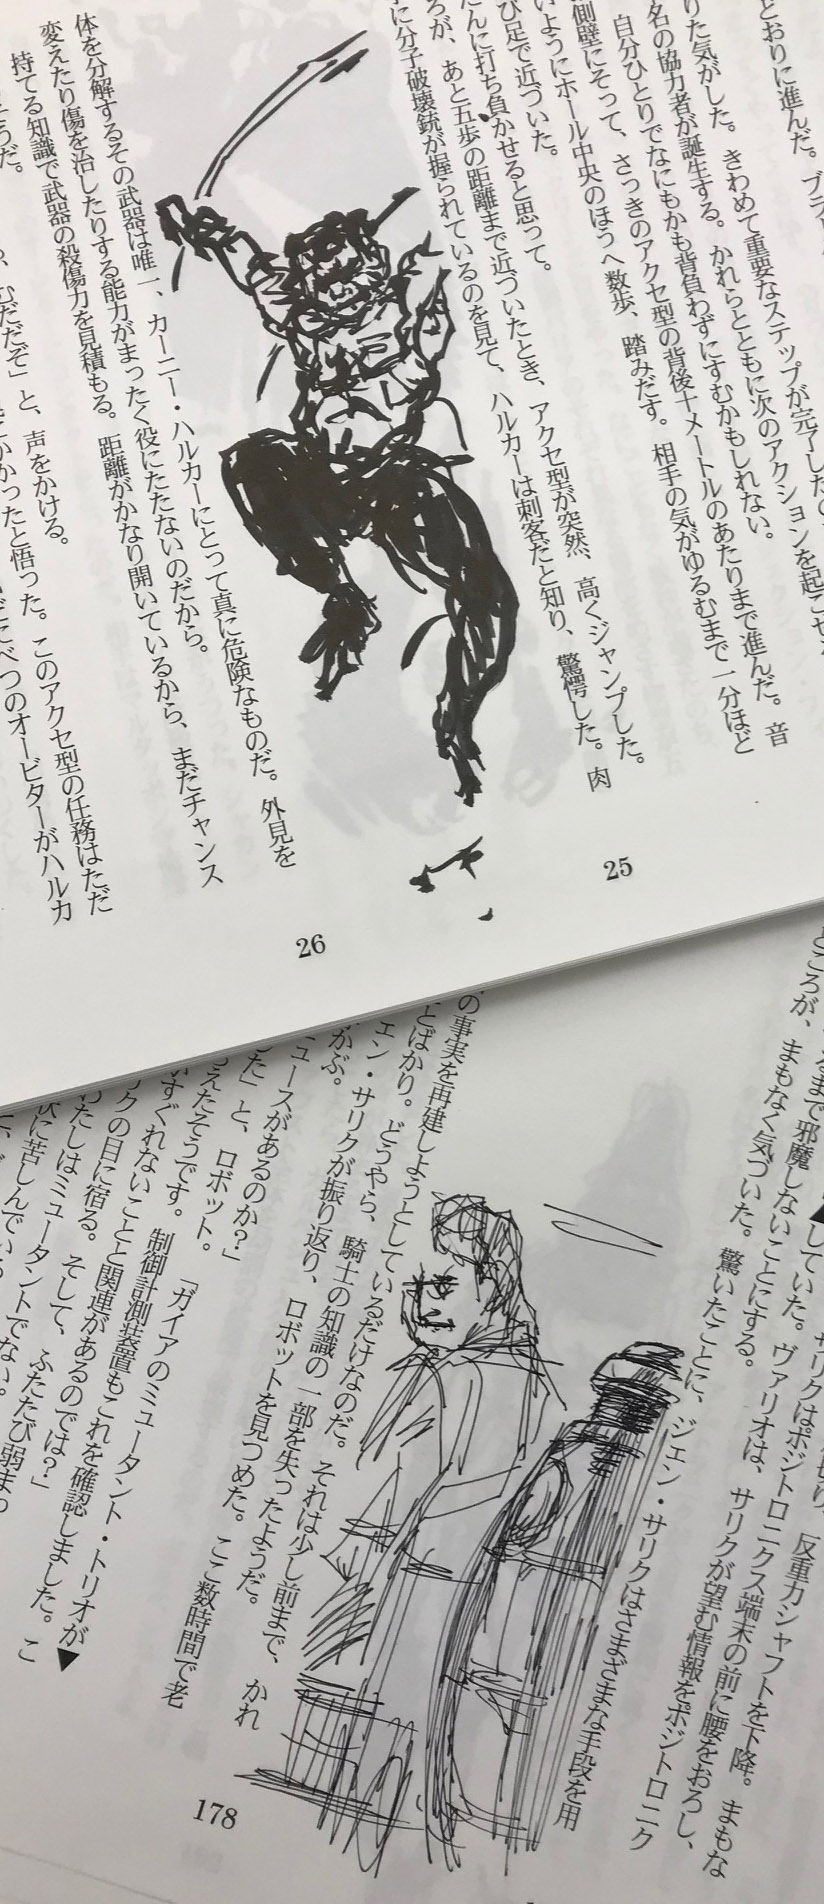 とおりに進んだ。ブラ
りた気がした。きわめて重要なステップが完了した
名の協力者が誕生する。かれらとともに次のアクションを起こせ
自分ひとりでなにもかも背負わずにすむかもしれない。
側壁にそって、さっきのアクセ型の背後十メートルのあたりまで進んだ。音
いようにホール中央のほうへ数歩、踏みだす。相手の気がゆるむまで一分ほど
び足で近づいた。
たんに打ち負かせると思って。
ろが、あと五歩の距離まで近づいたとき、アクセ型が突然、高くジャンプした。
に分子破壊銃が握られているのを見て、ハルカーは刺客だと知り、驚愕した。肉
25
体を分解するその武器は唯一、カーニー・ハルカーにとって真に危険なものだ。外見を
変えたり傷を治したりする能力がまったく役にたたないのだから。
持てる知識で武器の殺傷力を見積もる。距離がかなり開いているから、まだチャンス
そうだ。
むだだぞ」と、声をかける。
かったと悟った。このアクセ型の任務はただ
べつのオービターがハルカ
26
ところが、まもなく気づいた。驚いたことに、ジェン・サリクはさまざまな手段を用
るまで邪魔しないことにする。
していた。ヴァリオは、サリクが望む情報をポジトロニク
サリクはポジトロニクス端末の前に腰をおろし、
反重力シャフトを下降。まもな
の事実を再建しようとしているだけなのだ。それは少し前まで、かれ
とばかり。どうやら、騎士の知識の一部を失ったようだ。
ェン・サリクが振り返り、ロボットを見つめた。ここ数時間で老
かぶ。
ュースがあるのか?」
た」と、ロボット。
「ガイアのミュータント・トリオが▼
えたそうです。制御計測装置もこれを確認しました。こ
いすぐれないことと関連があるのでは?」
クの目に宿る。そして、ふたたび弱まっ
わたしはミュータントでない。
状に苦しんでいる
178